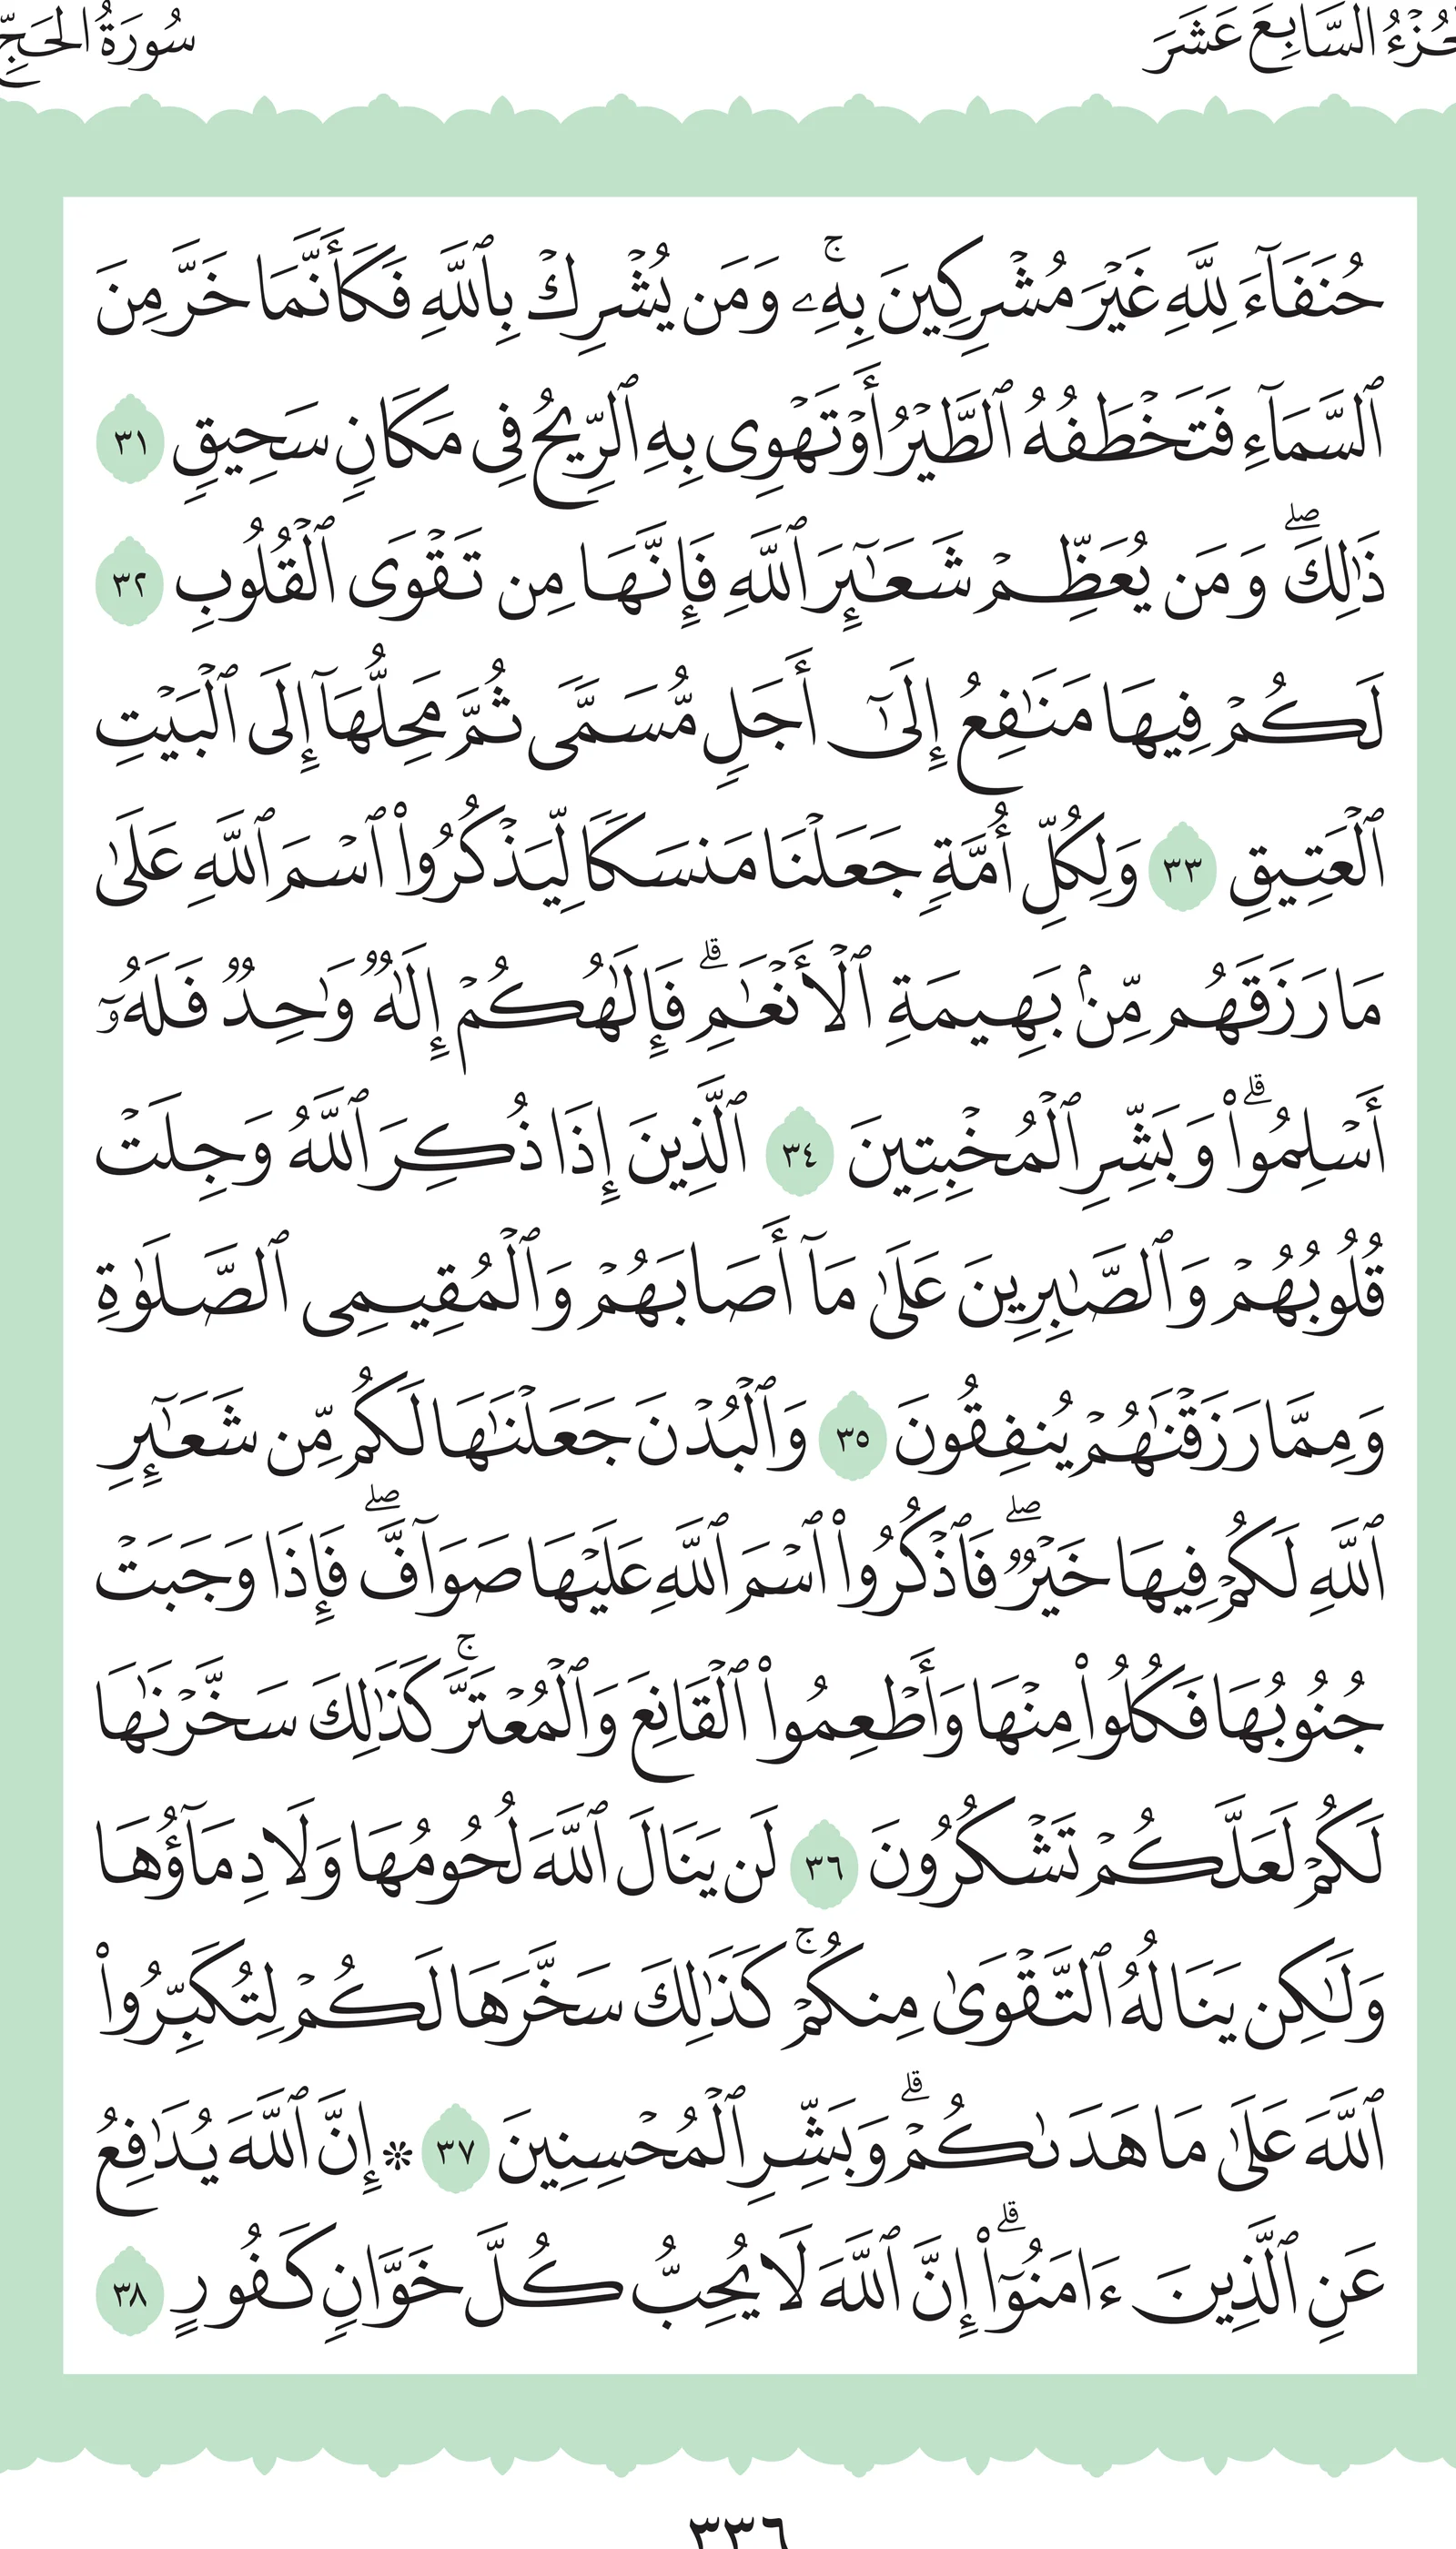 الجُزْءُ السَّابِعَ عَشَرَ
سُورَةُ الحَجِّ
حُنَفَآءَ لِلَّهِ غَيْرَ مُشْرِكِينَ بِهِۦۚ وَمَن يُشْرِكْ بِٱللَّهِ فَكَأَنَّمَا خَرَّ مِنَ
ٱلسَّمَآءِ فَتَخْطَفُهُ ٱلطَّيْرُ أَوْ تَهْوِى بِهِ ٱلرِّيحُ فِى مَكَانٍ سَحِيقٍ ٣١
ذَٰلِكَۖ وَمَن يُعَظِّمْ شَعَـٰٓئِرَ ٱللَّهِ فَإِنَّهَا مِن تَقْوَى ٱلْقُلُوبِ ٣٢
لَكُمْ فِيهَا مَنَـٰفِعُ إِلَىٰٓ أَجَلٍ مُّسَمًّى ثُمَّ مَحِلُّهَآ إِلَى ٱلْبَيْتِ
ٱلْعَتِيقِ ٣٣ وَلِكُلِّ أُمَّةٍ جَعَلْنَا مَنسَكًا لِّيَذْكُرُوا۟ ٱسْمَ ٱللَّهِ عَلَىٰ
مَا رَزَقَهُم مِّنۢ بَهِيمَةِ ٱلْأَنْعَـٰمِۗ فَإِلَـٰهُكُمْ إِلَـٰهٌ وَٰحِدٌ فَلَهُۥٓ
أَسْلِمُوا۟ۗ وَبَشِّرِ ٱلْمُخْبِتِينَ ٣٤ ٱلَّذِينَ إِذَا ذُكِرَ ٱللَّهُ وَجِلَتْ
قُلُوبُهُمْ وَٱلصَّـٰبِرِينَ عَلَىٰ مَآ أَصَابَهُمْ وَٱلْمُقِيمِى ٱلصَّلَوٰةِ
وَمِمَّا رَزَقْنَـٰهُمْ يُنفِقُونَ ٣٥ وَٱلْبُدْنَ جَعَلْنَـٰهَا لَكُم مِّن شَعَـٰٓئِرِ
ٱللَّهِ لَكُمْ فِيهَا خَيْرٌۖ فَٱذْكُرُوا۟ ٱسْمَ ٱللَّهِ عَلَيْهَا صَوَآفَّۖ فَإِذَا وَجَبَتْ
جُنُوبُهَا فَكُلُوا۟ مِنْهَا وَأَطْعِمُوا۟ ٱلْقَانِعَ وَٱلْمُعْتَرَّۚ كَذَٰلِكَ سَخَّرْنَـٰهَا
لَكُمْ لَعَلَّكُمْ تَشْكُرُونَ ٣٦ لَن يَنَالَ ٱللَّهَ لُحُومُهَا وَلَا دِمَآؤُهَا
وَلَـٰكِن يَنَالُهُ ٱلتَّقْوَىٰ مِنكُمْۚ كَذَٰلِكَ سَخَّرَهَا لَكُمْ لِتُكَبِّرُوا۟
ٱللَّهَ عَلَىٰ مَا هَدَىٰكُمْۗ وَبَشِّرِ ٱلْمُحْسِنِينَ ٣٧ * إِنَّ ٱللَّهَ يُدَٰفِعُ
عَنِ ٱلَّذِينَ ءَامَنُوٓا۟ۗ إِنَّ ٱللَّهَ لَا يُحِبُّ كُلَّ خَوَّانٍ كَفُورٍ ٣٨
٣٣٦